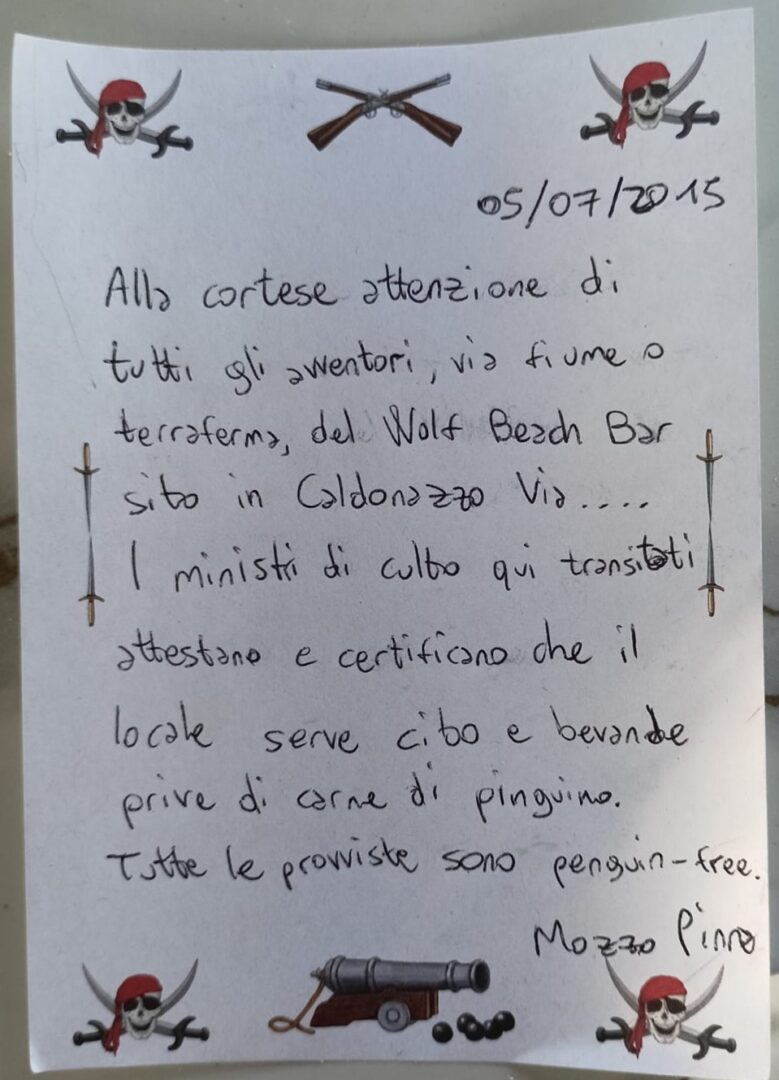 05/07/2015
Alla cortese attenzione di
tutti gli avventori, via fiume o
terraferma, del Wolf Beach Bar
sito in Caldonazzo Via....
I ministri di culto qui transitati
attestano e certificano che il
locale serve cibo e bevande
prive di carne di pinguino.
Tutte le provviste sono penguin-free.
Mozzo Pinna